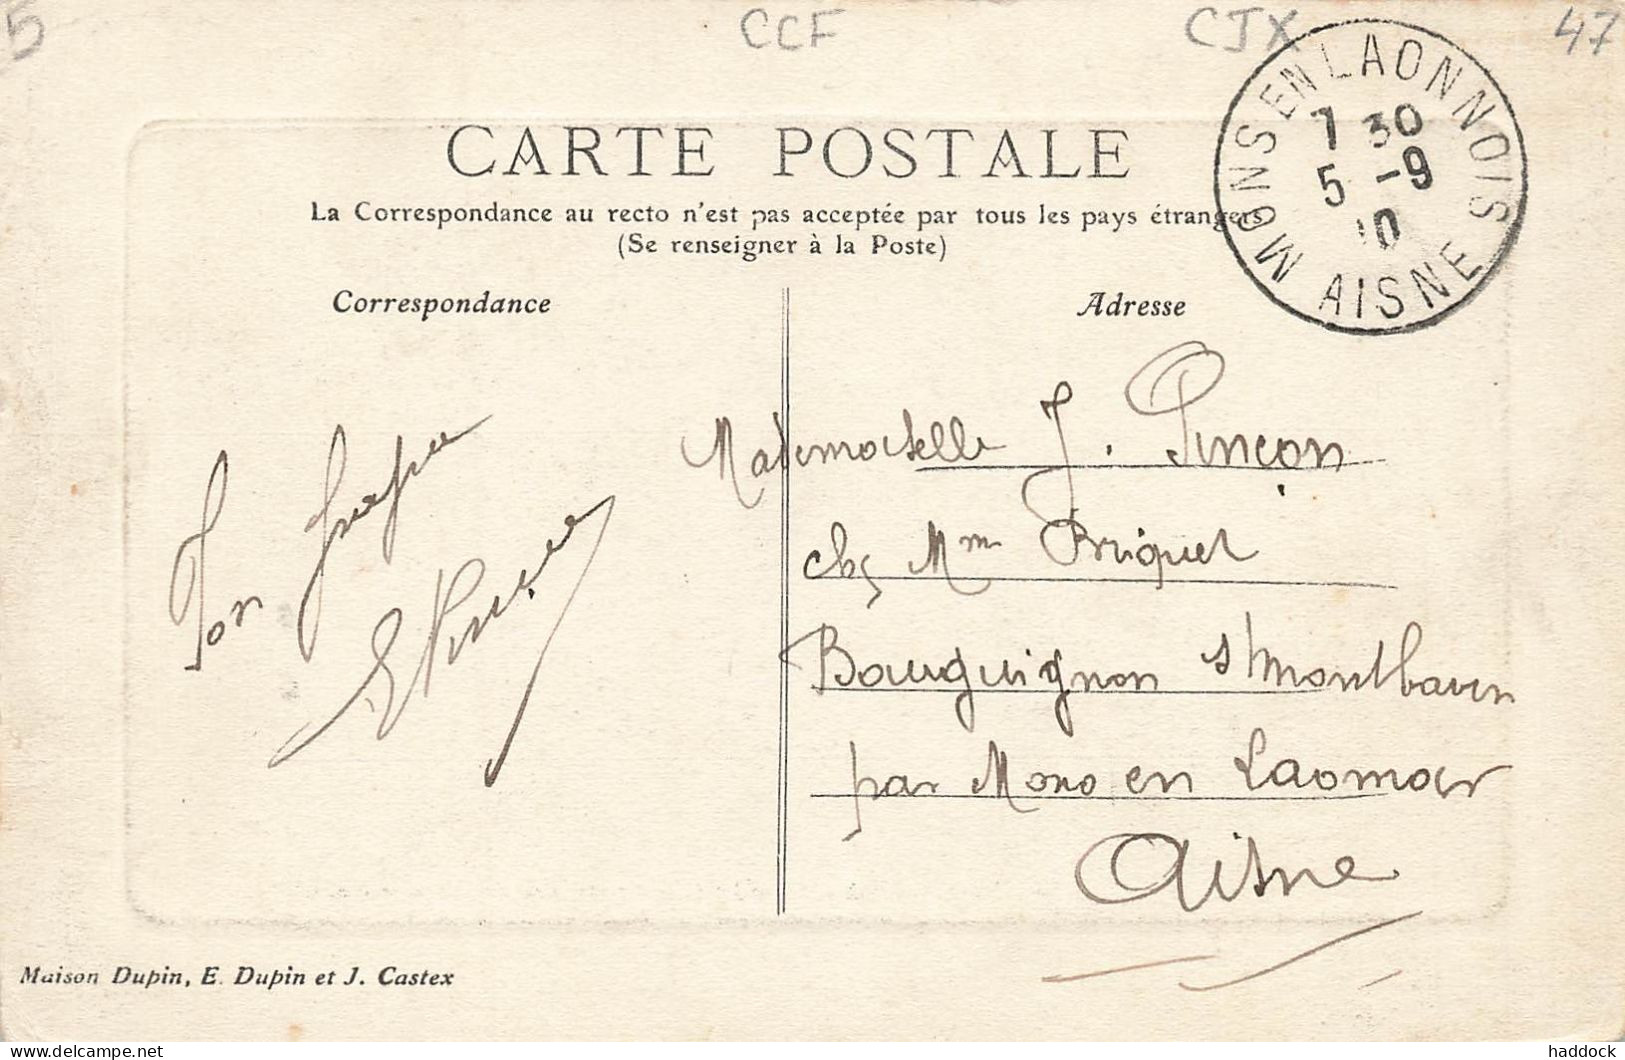 5
CCF
CJX
47
MONS EN LAONNOIS
7 30
5 -9
10
AISNE
CARTE POSTALE
La Correspondance au recto n'est pas acceptée par tous les pays étrangers
(Se renseigner à la Poste)
Correspondance
Adresse
Ton frère
Mademoiselle J. Pinçon
chez Mme Briquet
Bouguignon s/ Montbavin
par Mons en Laonnois
Aisne
Maison Dupin, E. Dupin et J. Castex
www.delcampe.net
haddock